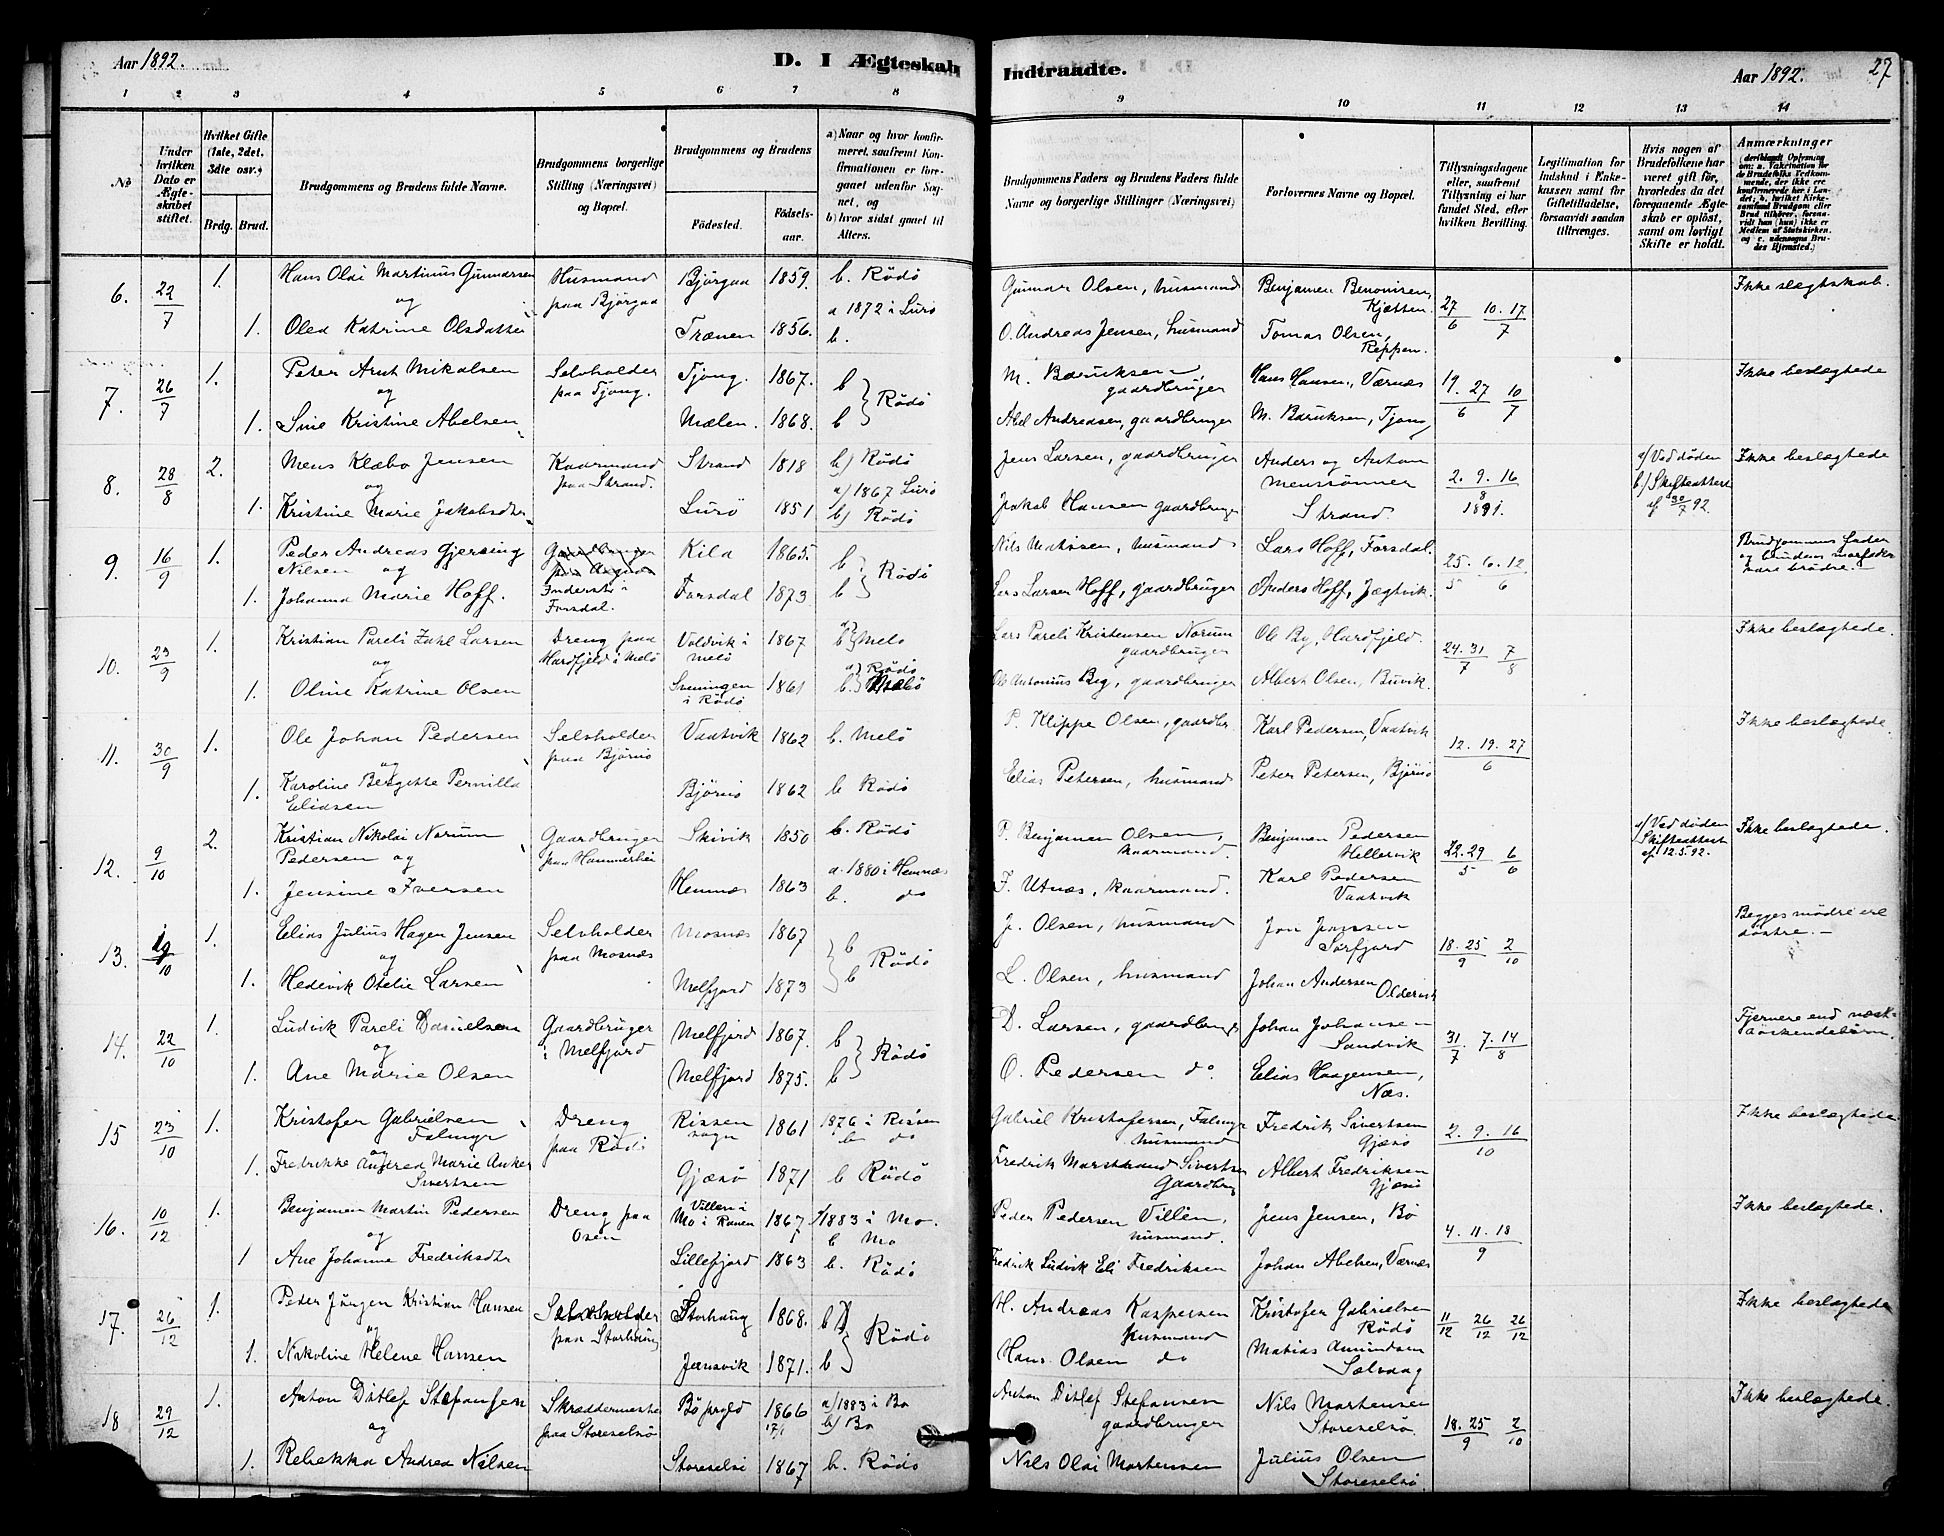 Aar 1892.
D. I Ægteskab
Indtraadte.
Aar 1892.
27
1 2 3 4 5 6 7 8 9 10 11 12 13 14
No
Under hvilken Dato er Ægteskabet stiftet.
Hvilket Gifte (1ste, 2det, 3die osv.)
Brdg. Brud.
Brudgommens og Brudens fulde Navne.
Brudgommens borgerlige Stilling (Næringsvei) og Bopæl.
Brudgommens og Brudens
Fødested.
Fødsels-aar.
a) Naar og hvor konfirmeret, saafremt Konfirmationen er foregaaet udenfor Sognet, og
b) hvor sidst gaaet til Alters.
Brudgommens Faders og Brudens Faders fulde Navne og borgerlige Stillinger (Næringsvei)
Forlovernes Navne og Bopæl.
Tillysningsdagene eller, saafremt Tillysning ei har fundet Sted, efter hvilken Bevilling.
Legitimation for Indskud i Enkekassen samt for Giftetilladelse, forsaavidt saadan tiltrænges.
Hvis nogen af Brudefolkene har været gift før, hvorledes da det foregaaende Ægteskab er opløst, samt om lovligt Skifte er holdt.
Anmærkninger
6. 22/7 1. Hans Olai Martinus Gunnarsen Husmand Bjørgaa 1859. b. Rødø
og paa Bjørgaa a 1872 i Lurø
1. Olea Katrine Olsdatter Trænen 1856. b.
Gunnar Olsen, husmand Benjamen Benonisen, Kjøtten. 27/6 10. 17/7 Ikke slegtskab.
O. Andreas Jensen, husmand Tomas Olsen, Reppen.
7. 26/7 1. Peter Arnt Mikalsen Selvholder Tjong. 1867. b
og paa Tjong. Rødø
1. Sine Kristine Abelsen Mælen. 1868. b
M. Baruksen, gaardbruger Hans Hansen, Værnæs 19. 27/6 10/7 Ikke beslægtede
Abel Andreasen, gaardbruger M. Baruksen, Tjong
8. 28/8 2. Mens Klæbo Jensen Kaarmand Strand 1818 b) Rødø
og paa Strand. a) 1867 Lurø
1. Kristine Marie Jakobsdtr Lurø 1851 b) Rødø
Jens Larsen, gaardbruger Anders og Anton Menssønner 2. 9. 16/8 1891. a) Ved døden Ikke beslægtede
b.) Skifteattest af 30/7 92.
Jakob Hansen gaardbruger Strand.
9. 16/9 1. Peder Andreas Gjersing Gaardbruger Kila 1865. b
Nilsen og Inderst i Rødø
1. Johanna Marie Hoff. Forsdal. Forsdal 1873. b
Nils Matisen, husmand Lars Hoff, Forsdal. 25/5 6. 12/6 Brudgommens fader og brudens morfader
Lars Larsen Hoff, gaardbruger Anders Hoff, Jægtvik.
10. 23/9 1. Kristian Pareli Zahl Larsen Dreng paa Valdvik i 1867 Melø
og Hardfjeld i Melø Melø a) Rødø
1. Oline Katrine Olsen i Rødø 1861 b.
Lars Pareli Kristensen Norum gaardbruger Ol By, Hardfjeld. 24. 31/7 7/8 Ikke beslægtede.
Ole Antonius Beg, gaardbruger Albert Olsen, Buvik.
11. 30/9 1. Ole Johan Pedersen Selvholder Vaatvik 1862 b. Melø
og paa Bjørnø
1. Karoline Bergitte Pernilla Eliasen Bjørnø 1862 b Rødø
P. Klippe Olsen, gaardbr. Karl Pedersen, Vaatvik 12. 19. 27/6 Ikke beslægtede
Elias Petersen, husmand Peter Petersen, Bjørnø
12. 9/10 2. Kristian Nikolai Norum Gaardbruger Skivik 1850 b. Rødø
Pedersen og paa Hammerløi a. 1880 i Hemnæs
1. Jensine Iversen Hemnæs 1863 b. do
P. Benjamen Olsen, kaarmand. Benjamen Pedersen Hellervik 22. 29/5 6/6 a) Ved døden Ikke beslægtede.
Skifteattest af 12.5.92.
I. Utnæs, kaarmand. Karl Pedersen Vaatvik
13. 1. Elias Julius Hagen Jensen Selvholder Mosnæs 1867 b
og paa Mosnæs Rødø
1. Hedevik Otelie Larsen Melfjord 1873 b
J. Olsen, husmand Jon Jensen Sørfjord 18. 25/9 2/10 Begges mødre ere søstre.
L. Olsen, husmand Johan Andersen Oldervik
14. 22/10 1. Ludvik Pareli Danielsen Gaardbruger Melfjord 1867. b
og i Melfjord Rødø
1. Ane Marie Olsen Melfjord 1875. b
D. Larsen, gaardbruger Johan Johansen Sandvik 31/7 7. 14/8 Fjernere end næstsøskendebørn.
O. Pedersen do. Elias Haagensen, Næs.
15 23/10 1. Kristofer Gabrielsen Dreng Rissen 1861 1876 i Rissen
Falmyr og paa Rødø sogn b. do
1. Fredrikke Andrea Marie Anker Sivertsen Gjæsø 1871 b Rødø
Gabriel Kristofersen, Falmyr husmand Fredrik Sivertsen Gjæsø 2. 9. 16/10 Ikke beslægtede
Fredrik Marstrand Sivertsen Gaardbrug Albert Fredriksen Gjæsø
16. 10/12 1. Benjamen Martin Pedersen Dreng paa Villen i 1867 1883 i Mo.
og Osen Mo i Ranen b Mo
1 Ane Johanna Fredriksdtr Lillefjord 1863 b. Rødø
Peder Pedersen Villen, husmand. Jens Jensen, Bø 4. 11. 18/9 Ikke beslægtede.
Fredrik Ludvik Eli Fredriksen Johan Abelsen, Værnæs
17. 26/12 1. Peder Jürgen Kristian Hansen Selvholder Storhaug 1868. b
og paa Storhaug Rødø
1. Nikoline Helene Hansen Jensvik 1871. b
H. Andreas Kaspersen husmand Kristofer Gabrielsen Rødø 11/12 26/12 26/12 Ikke beslægtede
Hans Olsen do Matias Amundsen Selvaag
18 29/12 1. Anton Ditlef Stefansen Skræddermester 1866 a) 1883 i Bø
og paa Storeselsø 17/1 b) Bø
1. Rebekka Andrea Nilsen Storeselsø 1867 b. Rødø
Anton Ditlef Stefansen gaardbruger Nils Mortensen Storeselsø. 18. 25/9 2/10 Ikke beslægtede.
Nils Olai Mortensen Julius Olsen Storeselsø